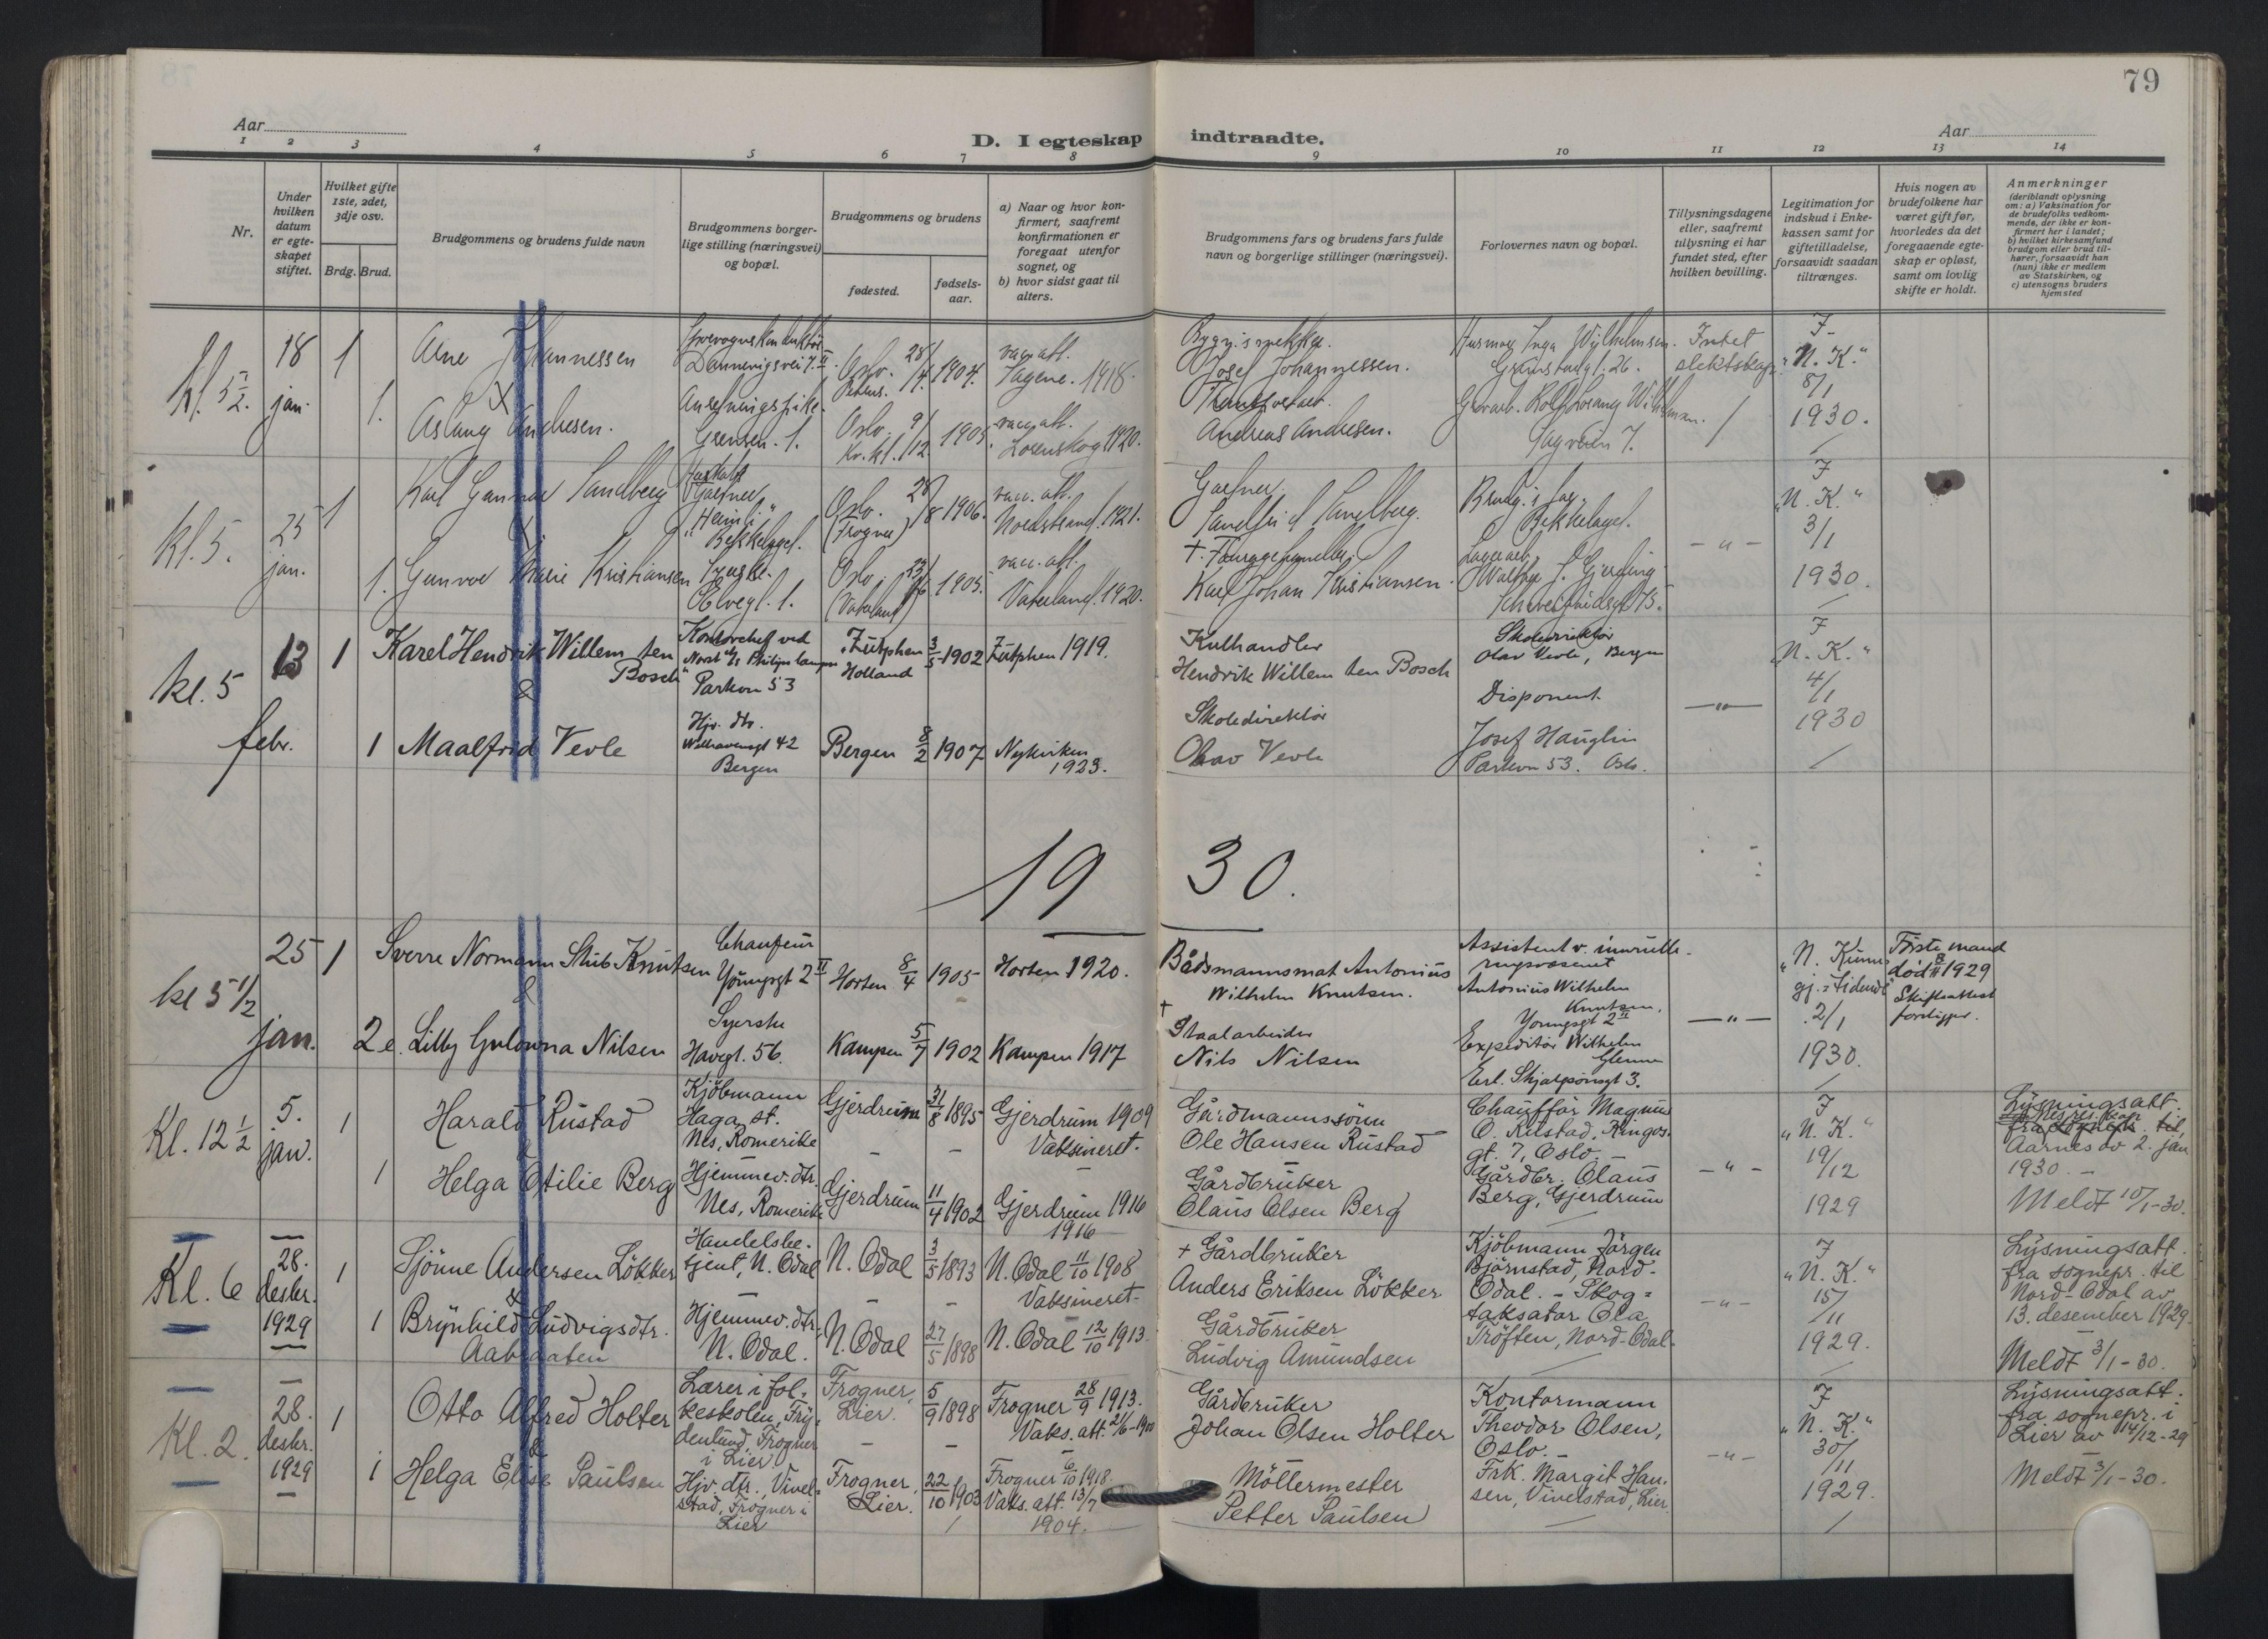 79
Aar
D. I egteskap indtraadte.
Aar
1 2 3 4 5 6 7 8 9 10 11 12 13 14
Nr.
Under
hvilken
datum
er egte-
skapet
stiftet.
Hvilket gifte
1ste, 2det,
3dje osv.
Brdg. Brud.
Brudgommens og brudens fulde navn
Brudgommens borger-
lige stilling (næringsvei)
og bopæl.
Brudgommens og brudens
fødested.
fødsels-
aar.
a) Naar og hvor kon-
firmert, saafremt
konfirmationen er
foregaat utenfor
sognet, og
b) hvor sidst gaat til
alters.
Brudgommens fars og brudens fars fulde
navn og borgerlige stillinger (næringsvei).
Forlovernes navn og bopæl.
Tillysningsdagene
eller, saafremt
tillysning ei har
fundet sted, efter
hvilken bevilling.
Legitimation for
indskud i Enke-
kassen samt for
giftetilladelse,
forsaavidt saadan
tiltrænges.
Hvis nogen av
brudefolkene har
været gift før,
hvorledes da det
foregaaende egte-
skap er opløst,
samt om lovlig
skifte er holdt.
Anmerkninger
(deriblandt oplysning
om: a) Vaksination for
de brudefolks vedkom-
mende, der ikke er kon-
firmert her i landet;
b) hvilket kirkesamfund
brudgom eller brud til-
hører, forsaavidt han
(hun) ikke er medlem
av Statskirken, og
c) utensogns bruders
hjemsted
kl. 5 1/2.
18
jan.
1
Arne Johannessen
&
1.
Aslaug Andresen.
Dannevigsvei 7. II
Grensen. 1.
Oslo. 28/4. 1904.
Oslo. 9/12. 1905.
vacc. att.
Sagene. 1918.
vacc. att.
Lørenskog 1920.
Josef Johannessen.
Andreas Andresen.
Grimstadgt. 26.
Sagveien 7.
Intet
slektskap.
F
"N. K."
8/1
1930.
kl. 5.
25
jan.
1
Karl Gunnar Sandberg
&
1. Gunvor Marie Kristiansen
Gartner
"Heimli"
Bekkelaget.
Oslo.
(Frogner)
28/8 1906.
Oslo.
(Vaterland)
1905.
vacc. att.
Nordstrand. 1921.
vacc. att.
Vaterland. 1920.
Gartner.
Karl Johan Kristiansen.
Brudg.s far.
Bekkelaget.
Schweigaardsgt 75.
- " -
F
"N. K."
3/1
1930.
kl. 5
13
febr.
1
Karel Hendrik Willem ten
Bosch
&
1 Maalfrid Vevle
Kontorchef ved
Norsk A/s Philips lampe
Parkvn 53
Hjv. dtr.
Bergen
Zütphen
Holland
3/5 1902
Bergen 8/2 1907
Zütphen 1919.
Nykirken
1923.
Kulhandler
Hendrik Willem ten Bosch
Skoledirektør
Olav Vevle
Skoledirektør
Olav Vevle, Bergen
Disponent
Josef Hauglin
Parkvn 53. Oslo.
- " -
F
"N. K."
4/1
1930
19 30.
kl 5 1/2
25
jan.
1
Sverre Normann Stub Knutsen
&
2 e. Lilly Gulowna Nilsen
Chauffeur
Youngsgt 2 II
Syerske
Havegt. 56.
Horten 8/4 1905
Kampen 5/7 1902
Horten 1920.
Kampen 1917
Bådsmannsmat Antonius
Wilhelm Knutsen.
+
Staalarbeider
Nils Nilsen
Assistent v. innrulle-
ringsvæsenet
Antonius Wilhelm
Knutsen.
Youngsgt 2 II
Expeditør Wilhelm
Glenne
Erl. Skjalgsønsgt 3.
- " -
2/1
1930.
Første mand
død 8/11 1929
Skifteattest
foreligger.
Kl. 12 1/2
5.
jan.
1
Harald Rustad
&
1
Helga Otilie Berg
Kjöbmann
Haga st.
Nes, Romerike
Hjemmev. dtr.
Nes, Romerike
Gjerdrum 31/8 1895
Gjerdrum 11/4 1902
Gjerdrum 1909
Vaksineret.
Gjerdrum 1916
1916
Gårdmannssønn
Ole Hansen Rustad
Gårdbruker
Olaus Olsen Berg
Chauffør Magnus
O. Rustad, Ringos.
gt. 7, Oslo.
Gårdbr. Olaus
Berg, Gjerdrum
- " -
F
"N. K."
19/12
1929
Lysningsatt.
Aarnes av 2. jan
1930. -
Meldt 10/1-30.
Kl. 6
28.
desbr.
1929
1
Sjönne Andersen Lökker
&
1 Brynhild Ludvigsdtr.
Handelsbe-
tjent, N. Odal
Hjemmev. dtr.
N. Odal.
N. Odal 3/5 1893
N. Odal 27/5 1898
N. Odal 11/10 1908
Vaksineret.
N. Odal 12/10 1913.
+ Gårdbruker
Anders Eriksen Lökker
Gårdbruker
Ludvig Amundsen
Kjöbmann Jörgen
Björnstad, Nord-
Odal. - Skog-
taksator Ola
Tröften, Nord-Odal.
- " -
F
"N. K."
15/11
1929.
Lysningsatt.
fra sognepr. til
Nord-Odal av
13. desember 1929.
Meldt 3/1-30.
Kl. 2.
28.
desbr.
1929
1
Otto Alfred Holter
&
1 Helga Elise Paulsen
Lærer i fol-
keskolen, Fry-
denlund, Frogner
i Lier
Hjv. dtr. Vivel-
stad, Frogner i
Lier
Frogner,
Lier.
5/9 1898
Frogner,
Lier.
22/10 1903
Frogner 28/9 1913.
Vaks. att. 2/6-1900
Frogner 6/10 1918.
Vaks. att. 13/7
1904.
Gårdbruker
Johan Olsen Holter
Möllermester
Petter Paulsen
Kontormann
Theodor Olsen,
Oslo.
Frk. Margit Han-
sen, Vivelstad, Lier
- " -
F
"N. K."
30/11
1929.
Lysningsatt.
fra sognepr. i
Lier av 14/12-29
Meldt 3/1-30.